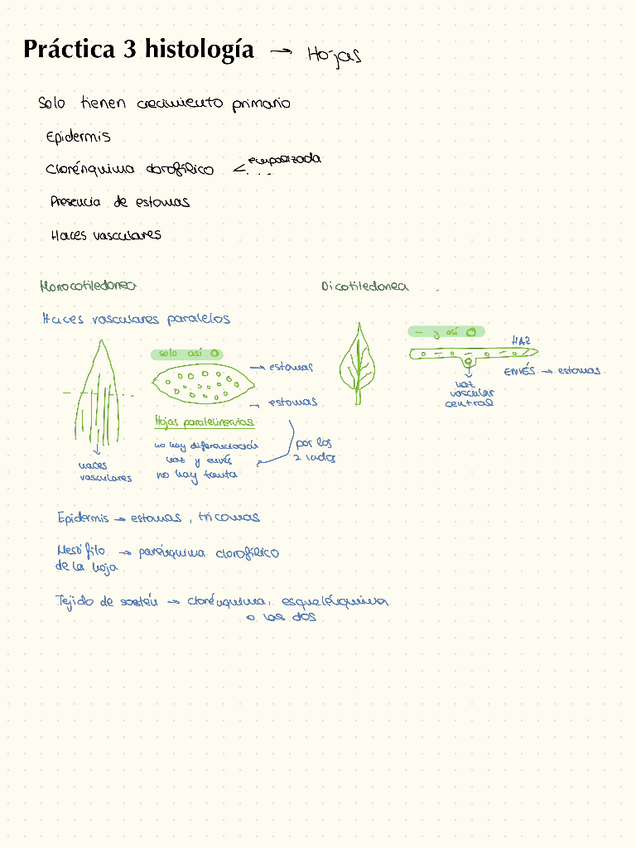 Práctica 3 histología → Hojas
Solo tienen crecimiento primario
Epidermis
Clorénquima clorofílico < empalizada
...
Presencia de estomas
Haces vasculares
Monocotiledonea
Dicotiledonea
Haces vasculares paralelos
solo así O
→ estomas
→ estomas
Hojas paralelinervias
no hay diferenciación
haz y envés
no hay tanta
por los
2 lados
haces
vasculares
— y así O
HAZ
ENVÉS → estomas
haz
vascular
central
Epidermis → estomas, tricomas
Mesófilo → parénquima clorofílico
de la hoja
Tejido de sostén → clorénquima, esquelénquima
o los dos